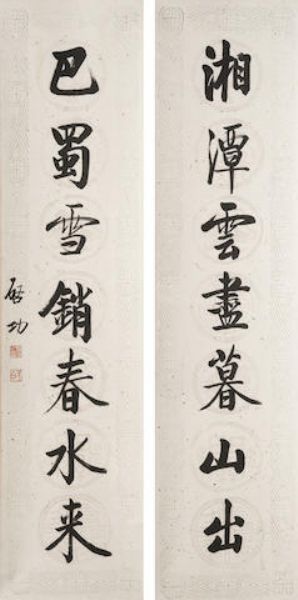 湘潭雲盡暮山出
巴蜀雪銷春水来
啟功